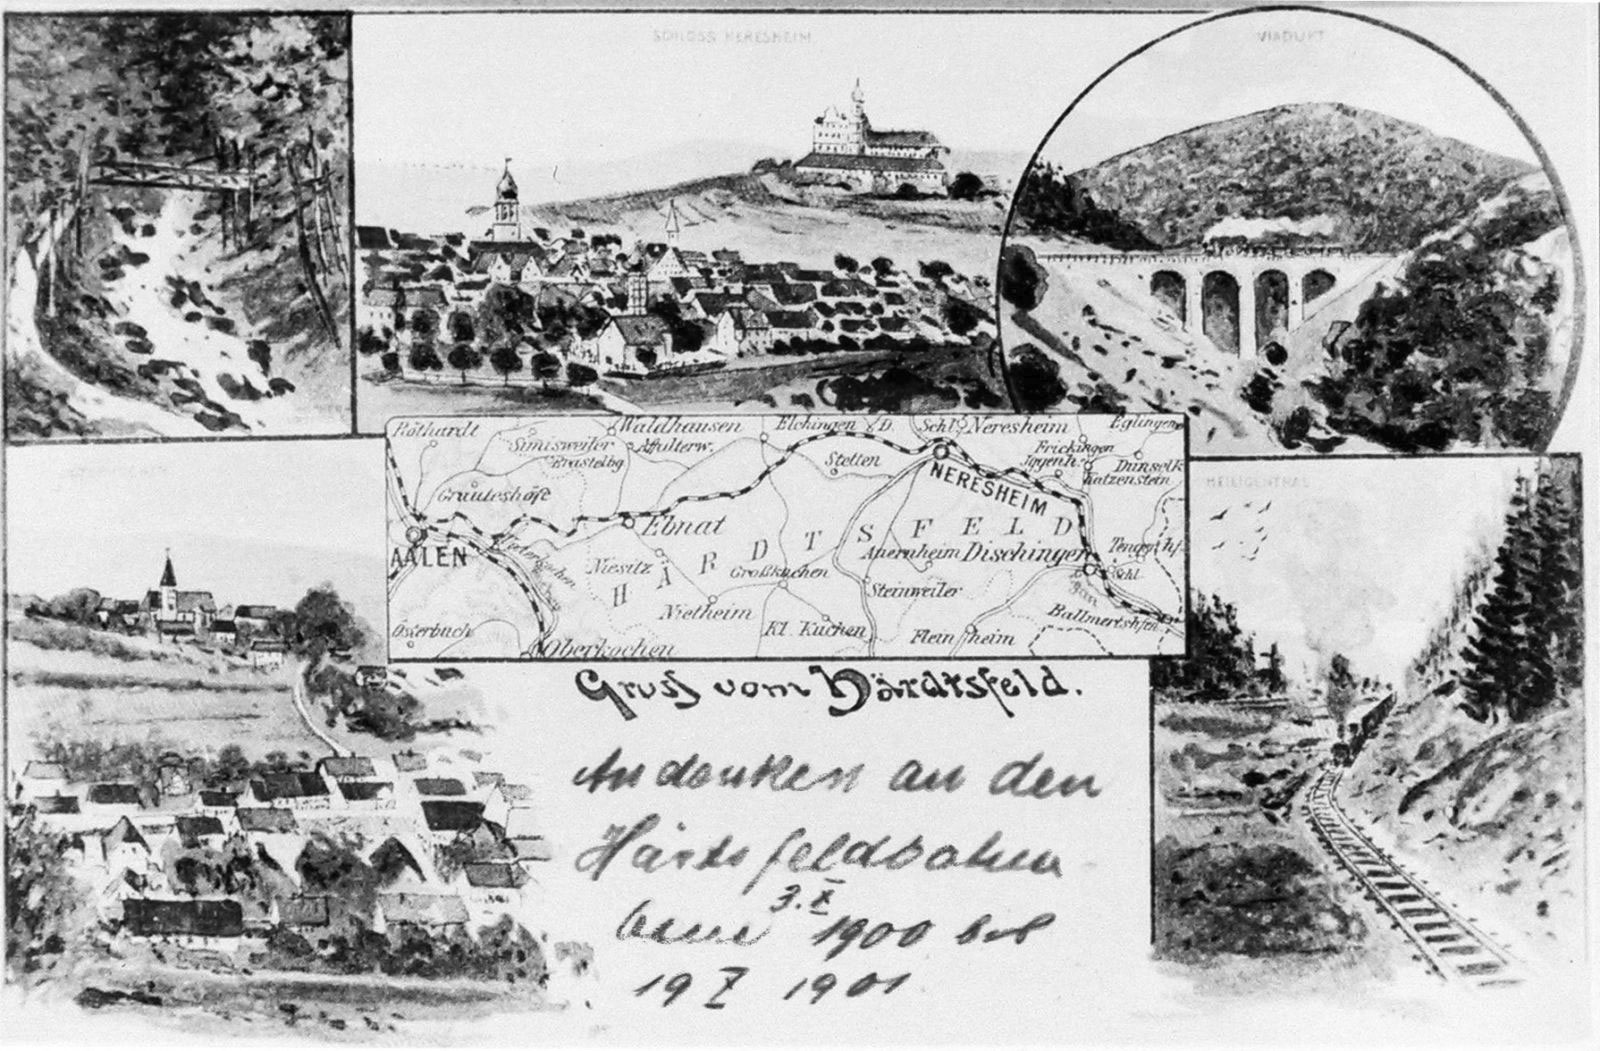 SCHLOSS NERESHEIM
VIADUKT
Röthardt
Waldhausen
Elchingen
D.
Schl. Neresheim
Eglingen
Simisweiler
Affulterw.
Brastelbg
Stetten
Frickingen
Iggenh.
Dunselk
Katzenstein
NERESHEIM
Grauleshöfe
Ebnat
HÄRDTSFELD
AALEN
Unterkochen
Niesitz
Großkuchen
Auernheim
Dischingen
Schl.
Steinweiler
Nietheim
Egau
Ballmertshfen
Osterbuch
Oberkochen
Kl. Kuchen
Fleinheim
HEILIGENTHAL
Gruss vom Härdtsfeld.
Andenken an den
Härtsfeldbahn
3. X
1900 bis
19 1901